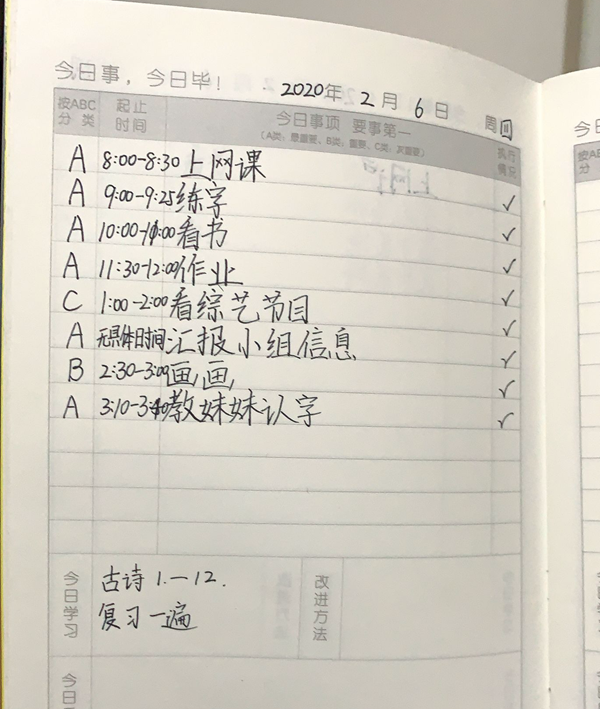 今日事，今日毕！ 2020年 2月 6日 周四
按ABC分类 起止时间 今日事项 要事第一 执行情况
（A类：最重要、B类：重要、C类：次重要）
A 8:00-8:30 上网课
A 9:00-9:25 练字 ✓
A 10:00-11:00 看书 ✓
A 11:30-12:00 作业 ✓
C 1:00-2:00 看综艺节目 ✓
A 无具体时间 汇报小组信息 ✓
B 2:30-3:00 画画 ✓
A 3:10-3:40 教妹妹认字 ✓
✓
今日学习 古诗 1.一12. 改进方法
复习一遍
今日
今日
按AB
分
今日学
今日